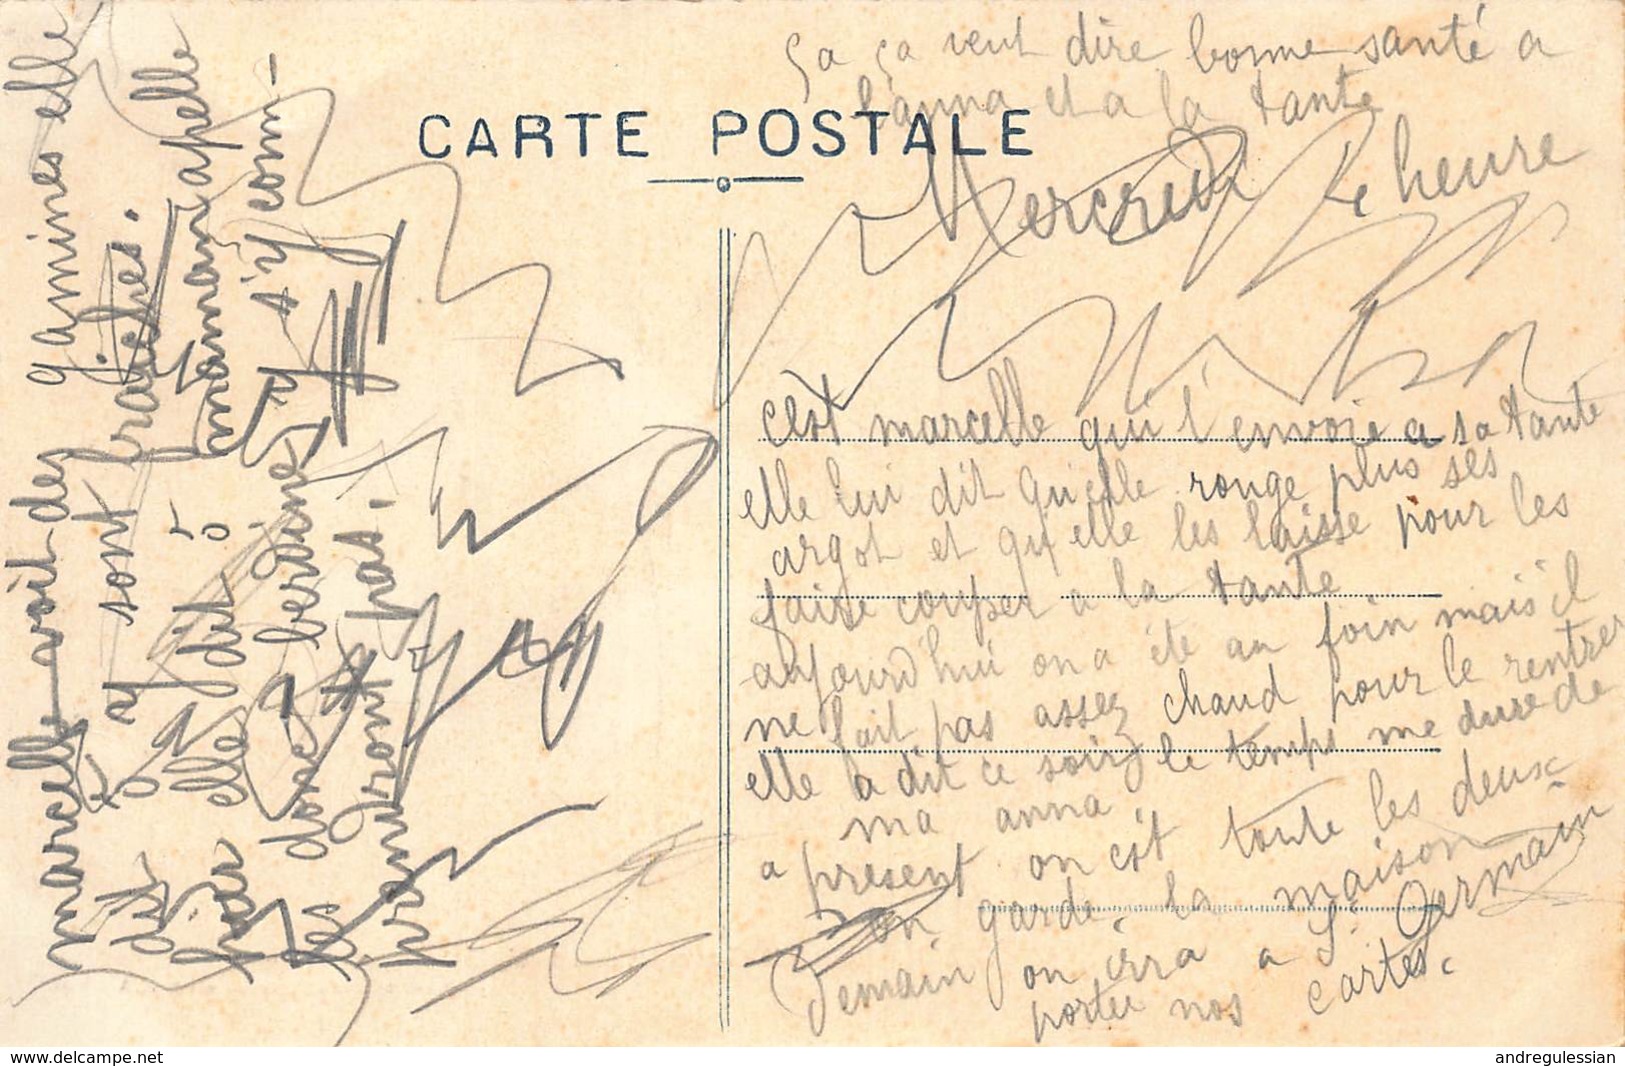 ça ça veut dire bonne santé a
l'anna et a la tante
CARTE POSTALE
Mercredi 4 heure
c'est marcelle qui l'envoie a sa tante
elle lui dit qu'elle rouge plus ses
argot et qu'elle les laisse pour les
faire couper a la tante
aujourd'hui on a été au foin mais il
ne fait pas assez chaud pour le rentrer
elle a dit ce soir le temps me dure de
ma anna.
a present on est toute les deux
on garde la maison
Demain on irra a St Germain
porter nos cartes.
marcelle voit des gamines elle
dit y sont fraiches.
la maman apelle
par elle dit s'y com-
les donc berdines y
prendront pas.
www.delcampe.net
andregulessian